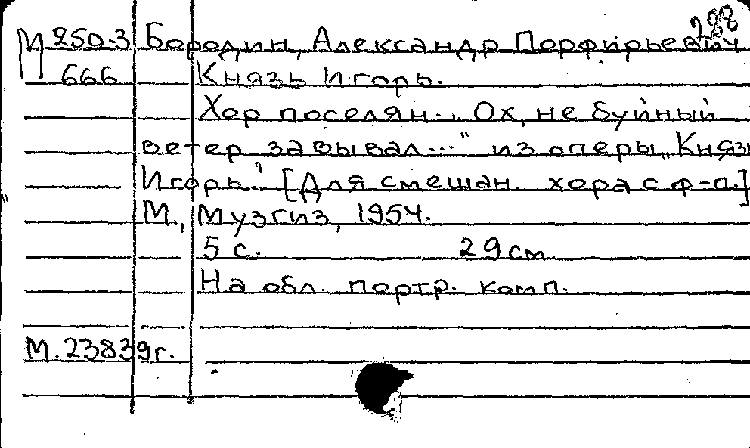 288
М 250-3 Бородин, Александр Порфирьевич
666 Князь Игорь.
Хор поселян „Ох, не буйный
ветер завывал..." из оперы „Князь
Игорь". [Для смешан. хора с ф-п.]
М., Музгиз, 1954.
5 с. 29 см
На обл. портр. комп.
М. 23839г.